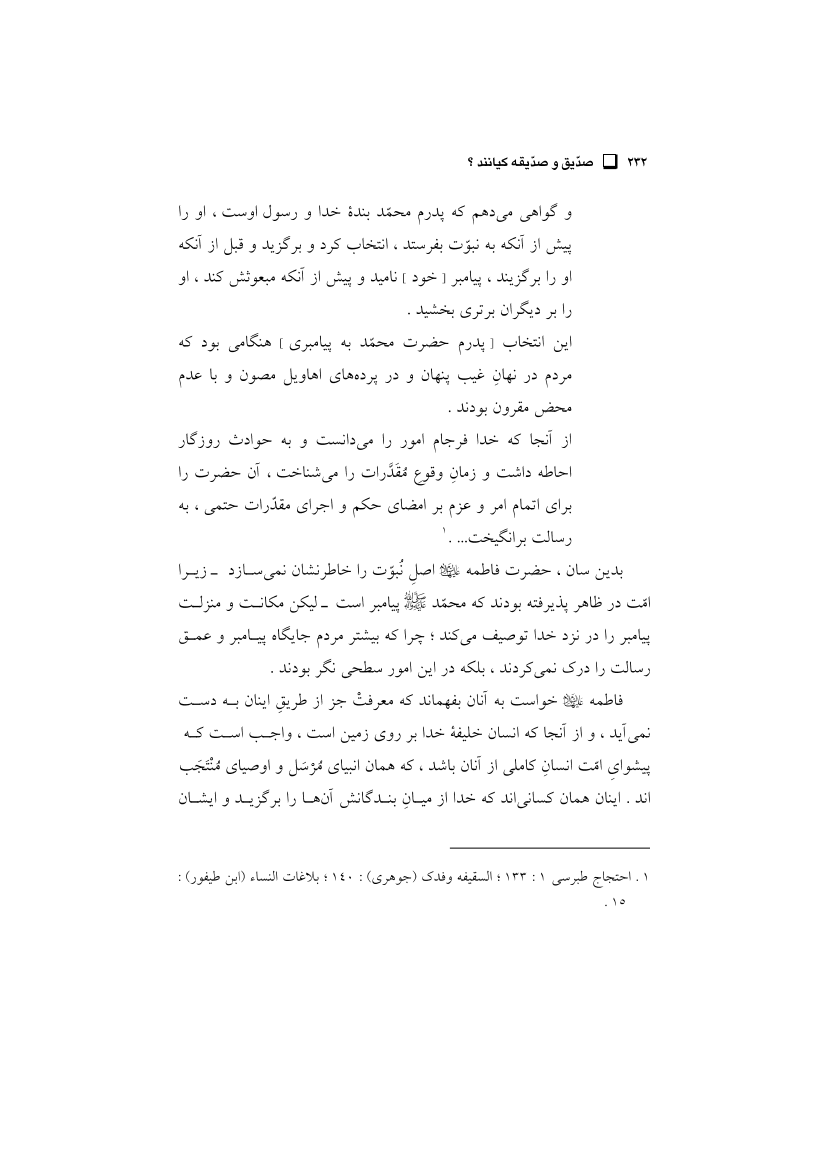 ۲۳۲ ❑ صدّیق و صدّیقه کیانند ؟
و گواهی می‌دهم که پدرم محمّد بندۀ خدا و رسول اوست ، او را
پیش از آنکه به نبوّت بفرستد ، انتخاب کرد و برگزید و قبل از آنکه
او را برگزیند ، پیامبر [ خود ] نامید و پیش از آنکه مبعوثش کند ، او
را بر دیگران برتری بخشید .
این انتخاب [ پدرم حضرت محمّد به پیامبری ] هنگامی بود که
مردم در نهانِ غیب پنهان و در پرده‌های اهاویل مصون و با عدم
محض مقرون بودند .
از آنجا که خدا فرجام امور را می‌دانست و به حوادث روزگار
احاطه داشت و زمانِ وقوعِ مُقَدَّرات را می‌شناخت ، آن حضرت را
برای اتمام امر و عزم بر امضای حکم و اجرای مقدّرات حتمی ، به
رسالت برانگیخت... .۱
بدین سان ، حضرت فاطمه علیها السلام اصلِ نُبوّت را خاطرنشان نمی‌سازد ـ زیرا
امّت در ظاهر پذیرفته بودند که محمّد ﷺ پیامبر است ـ لیکن مکانت و منزلت
پیامبر را در نزد خدا توصیف می‌کند ؛ چرا که بیشتر مردم جایگاه پیامبر و عمق
رسالت را درک نمی‌کردند ، بلکه در این امور سطحی نگر بودند .
فاطمه علیها السلام خواست به آنان بفهماند که معرفتْ جز از طریقِ اینان به دست
نمی‌آید ، و از آنجا که انسان خلیفۀ خدا بر روی زمین است ، واجب است که
پیشوایِ امّت انسانِ کاملی از آنان باشد ، که همان انبیای مُرْسَل و اوصیای مُنْتَجَب
اند . اینان همان کسانی‌اند که خدا از میانِ بندگانش آن‌ها را برگزید و ایشان
۱ . احتجاج طبرسی ۱ : ۱۳۳ ؛ السقیفه وفدک (جوهری) : ۱۴۰ ؛ بلاغات النساء (ابن طیفور) :
۱۵ .